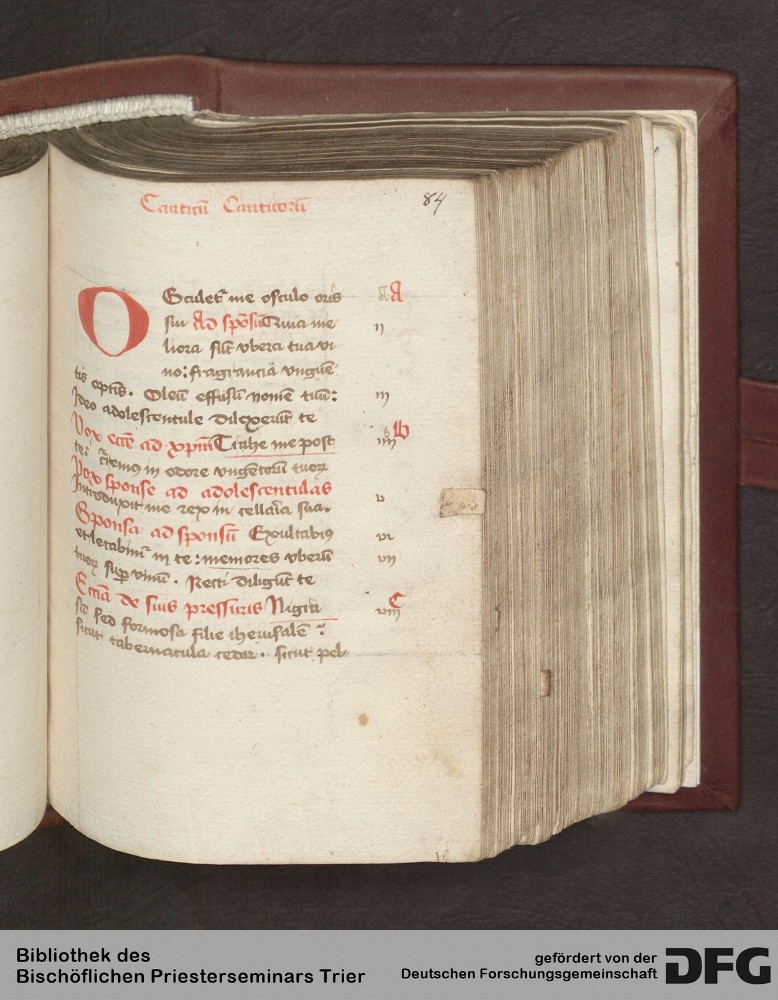 Canticū Canticorū
84
Osculet᷑ me osculo oris
A
sui Ad spōsū Quia me
ii
liora sūt vbera tua vi
no: fragrancia vnguē
tis optīs. Oleū effusū nomē tuū:
iii
Ideo adolescentule dilexerūt te
Vox ecc̄e ad xp̄m Trahe me post
b
iiii
te: curemꝰ in odore vngētorū tuoꝝ
Vox sponse ad adolescentulas
Introduxit me rex in cellaīa sua.
v
Sponsa ad sponsū Exultabimꝰ
vi
et letabimꝰ in te: memores vberū
vii
tuoꝝ suꝑ vinū. Recti diligūt te
Ecciā de suis pressuris Nigra
C
viii
sū sed formosa filie iherusalē:
sicut tabernacula cedar. sicut pel
Bibliothek des
Bischöflichen Priesterseminars Trier
gefördert von der
Deutschen Forschungsgemeinschaft
DFG